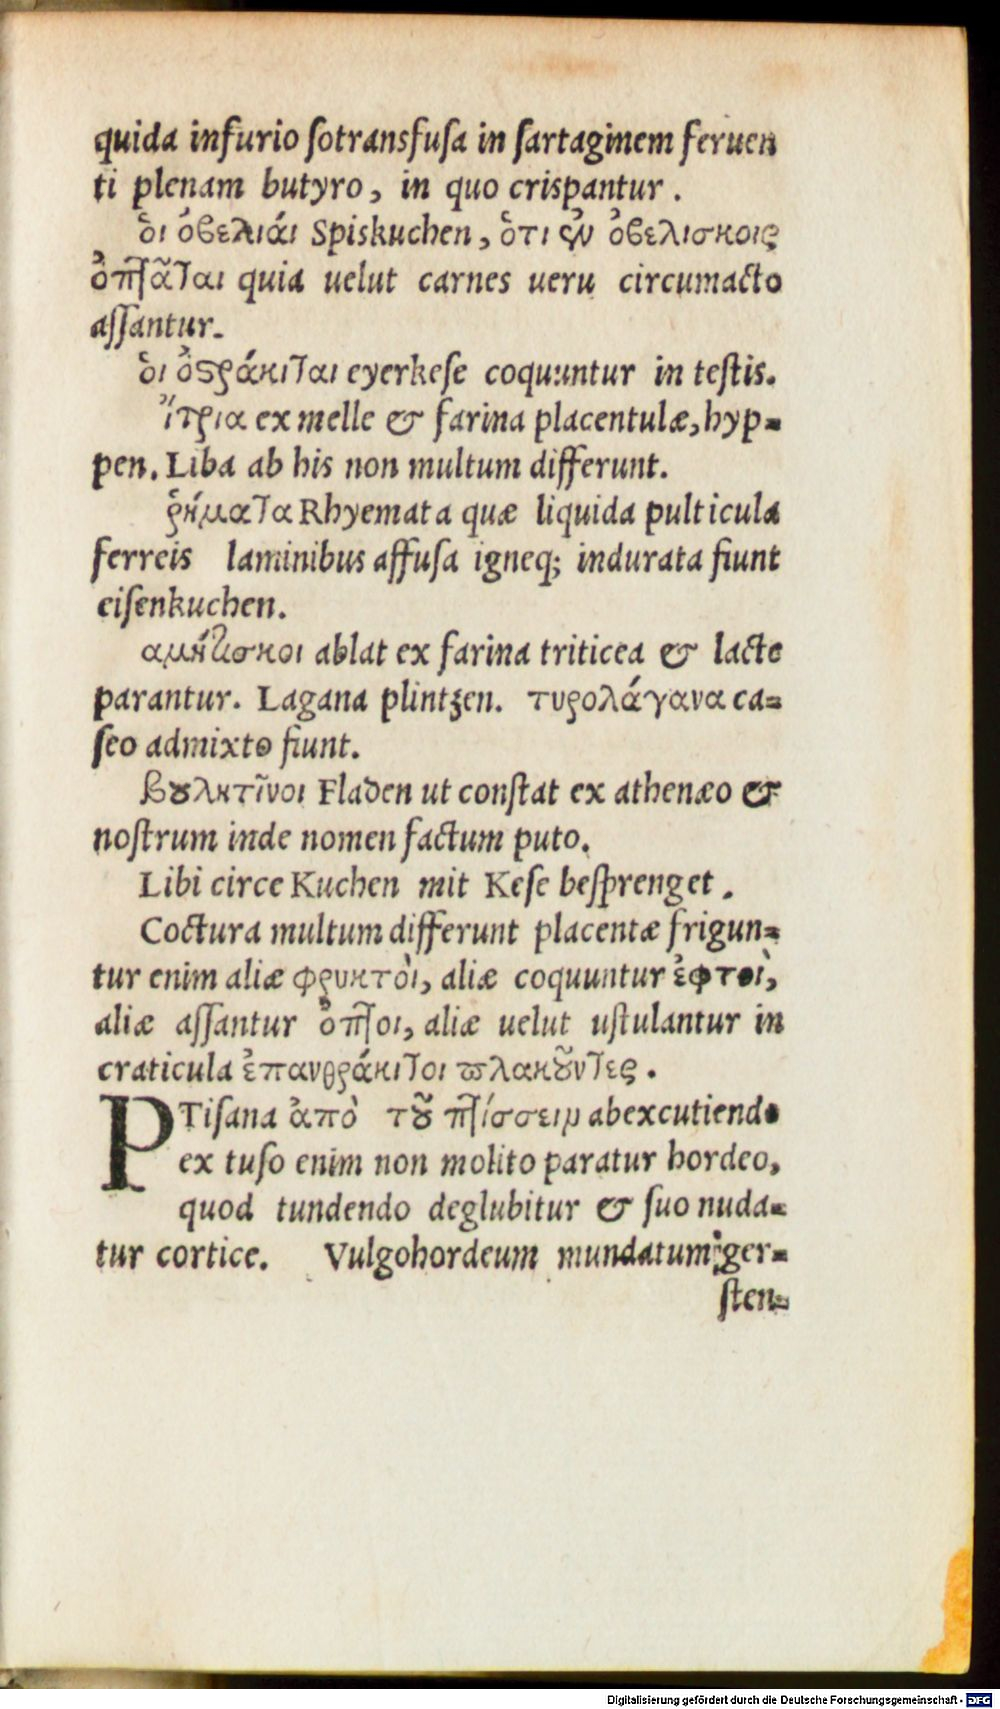 quida infurio ſotransfuſa in ſartaginem feruen
ti plenam butyro, in quo crispantur.
ὁι ὀβελιάι Spiskuchen, ὁτι ἐν ὀβελισκοις
ὀπτᾶται quia uelut carnes ueru circumacto
aſſantur.
ὁι ὀςράκιται eyerkeſe coquuntur in teſtis.
ἴτρια ex melle & farina placentulæ, hyp-
pen. Liba ab his non multum differunt.
ῥήματα Rhyemata quæ liquida pulticula
ferreis laminibus affuſa igneq; indurata fiunt
eiſenkuchen.
αμήτισκοι ablat ex farina triticea & lacte
parantur. Lagana plintzen. τυρολάγανα ca-
ſeo admixto fiunt.
βουλκτῖνοι Fladen ut conſtat ex athenæo &
noſtrum inde nomen factum puto.
Libi circe Kuchen mit Keſe beſprenget.
Coctura multum differunt placentæ frigun-
tur enim aliæ φρυκτὸι, aliæ coquuntur ἐφτοὶ,
aliæ aſſantur ὀπτοι, aliæ uelut uſtulantur in
craticula ἐπανθράκιτοι πλακοῦντες.
PTiſana ἀπὸ τοῦ πτίσσειν abexcutiendo
ex tuſo enim non molito paratur hordeo,
quod tundendo deglubitur & ſuo nuda-
tur cortice. Vulgohordeum mundatum: ger-
ſten-
Digitalisierung gefördert durch die Deutsche Forschungsgemeinschaft - DFG